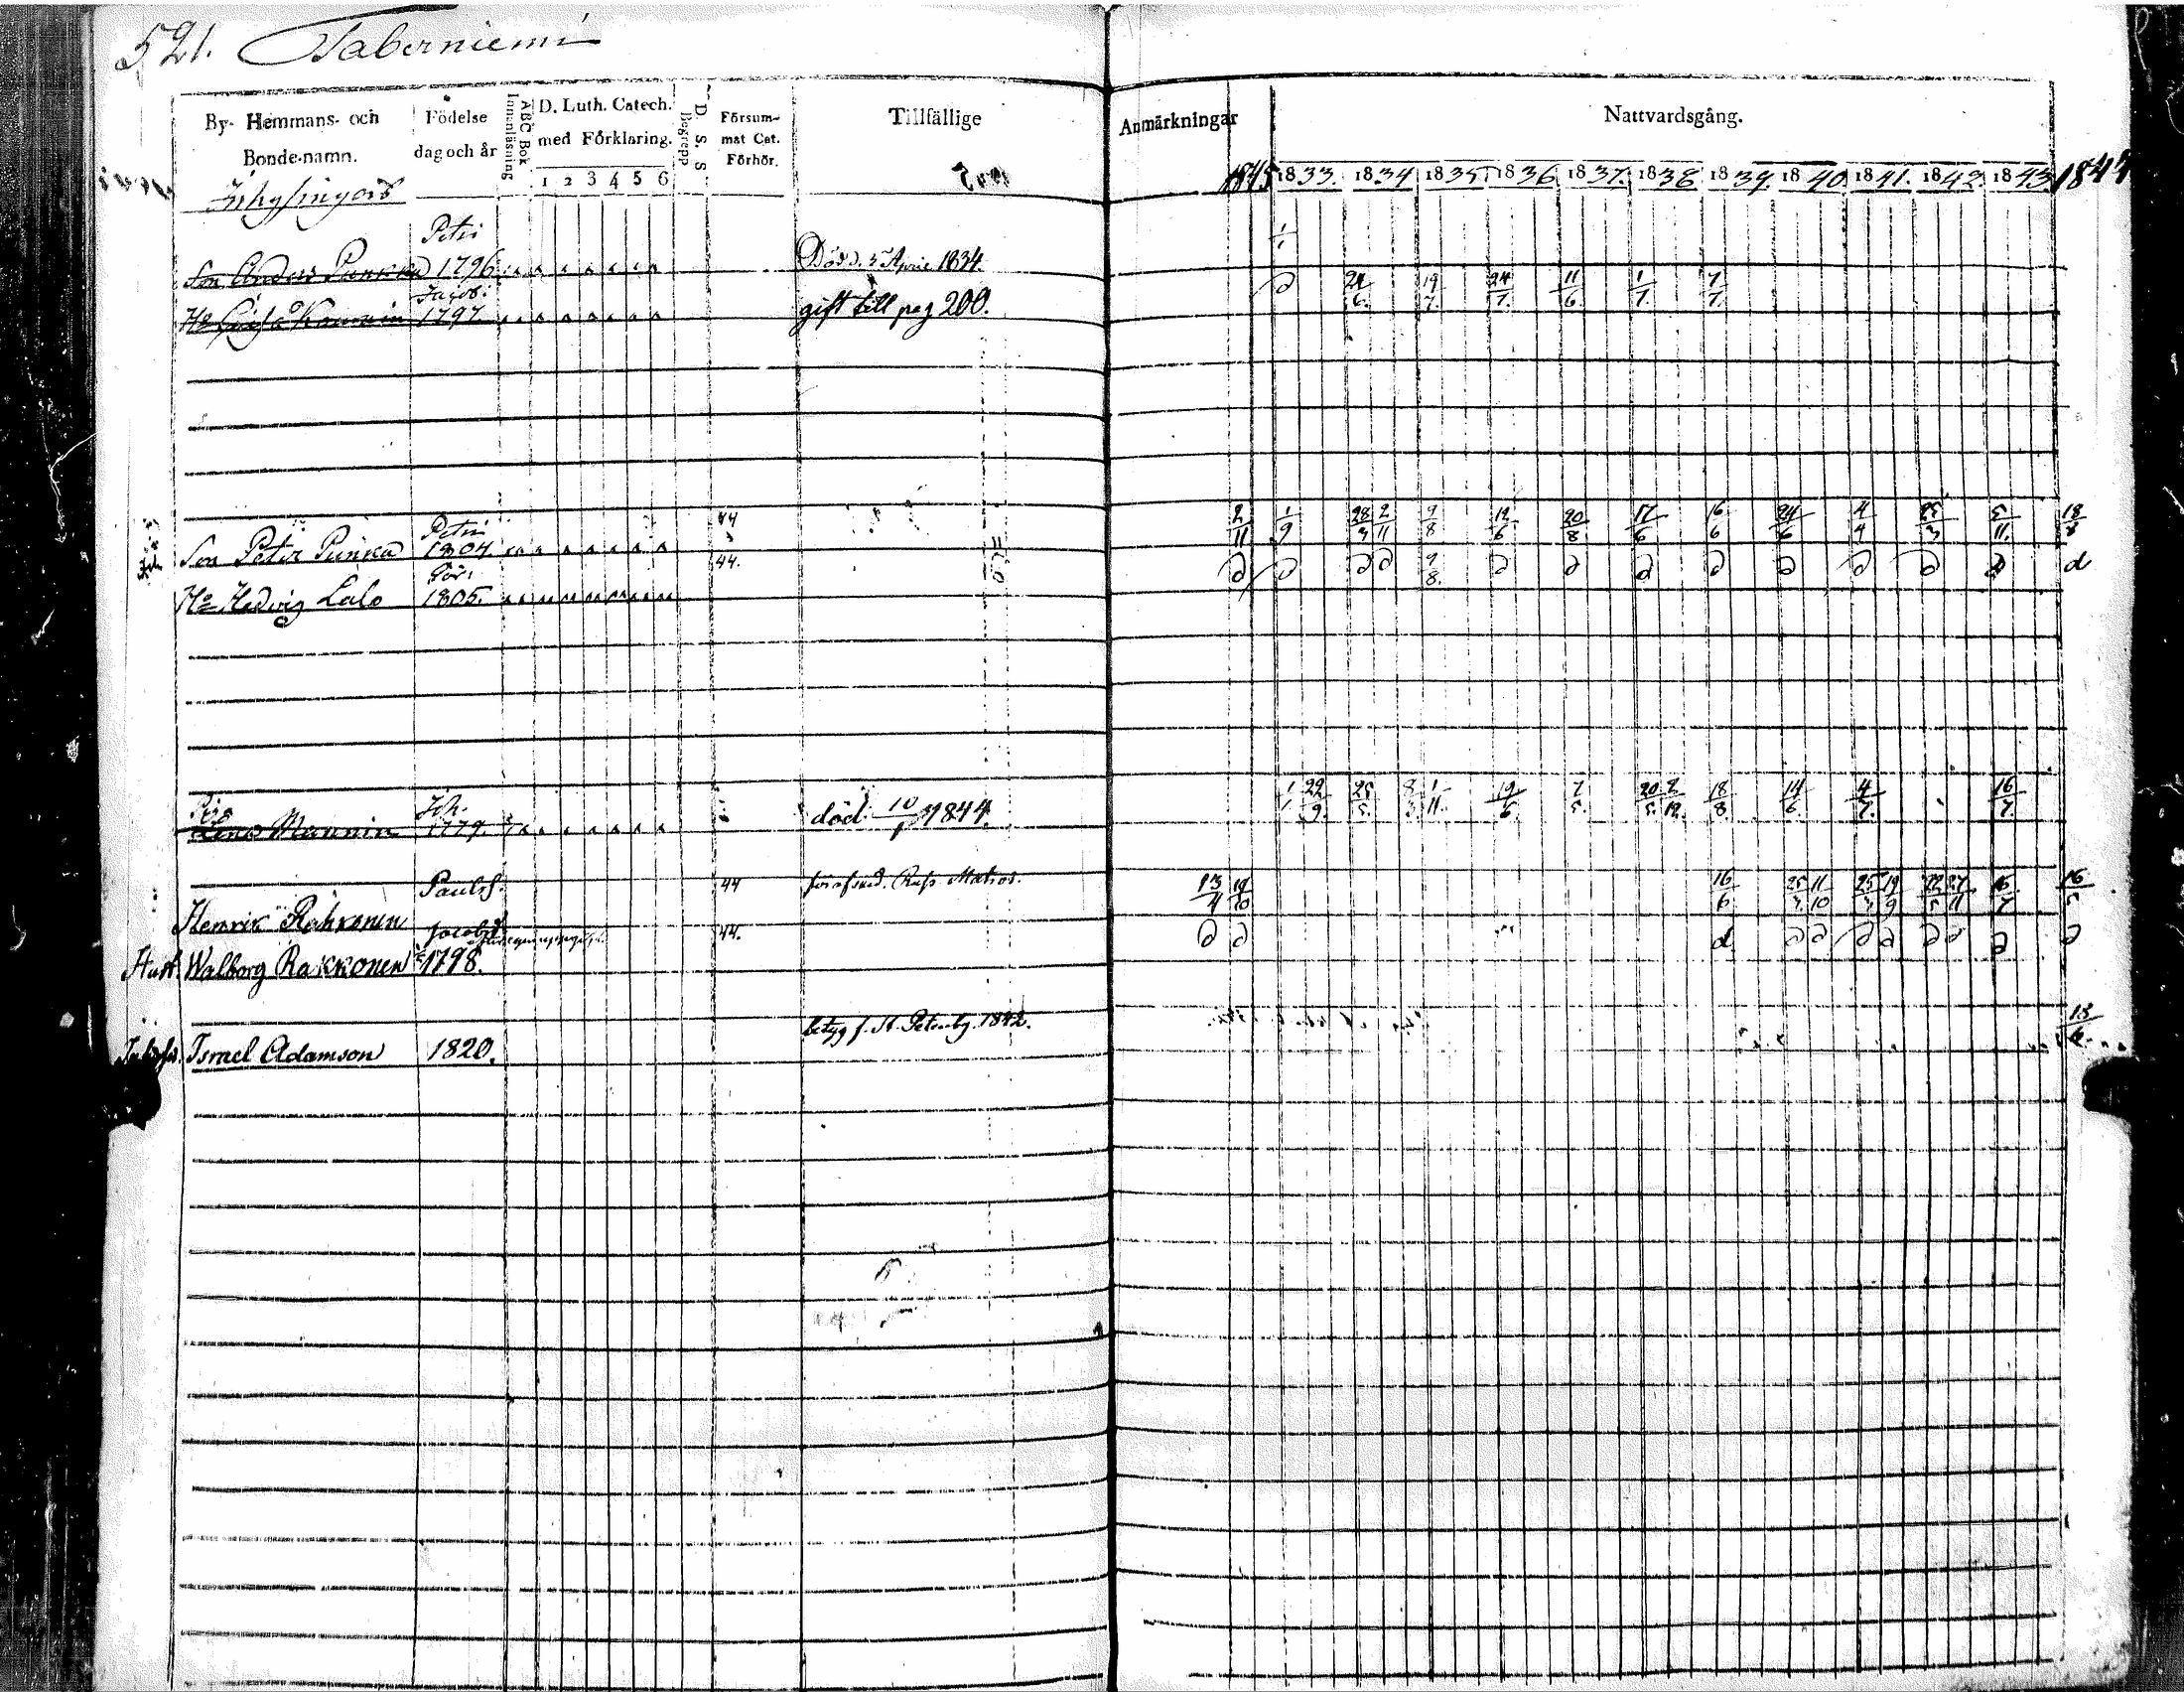 521. Taberniemi
By- Hemmans- och Bonde-namn.
Födelse dag och år
Innenläsning
ABC Bok
D. Luth. Catech. med Förklaring.
1 2 3 4 5 6
D. S. S Begrepp
Försummat Cat. Förhör.
Tillfällige
Anmärkningar
1845
Nattvardsgång.
1833. 1834 1835. 1836 1837. 1838 1839. 1840. 1841. 1842. 1843. 1844
Petri
Son Anders Punkka 1796. Död d. 3 April 1834. 1/1
Jacob:
1797. gift till pag 200. d 24/6. 19/7. 24/7. 11/6. 1/7. 7/7.
Petri
Son Peter Punka 1804. 44 2/11 1/9 28/3 2/11 9/8 12/6 20/8 17/6 16/6 24/6 4/4 25/3 5/11. 18/8
H:o Hedvig Lalo 1805. 44. d d d d 9/8. d d d d d d d d d
Joh.
Mannin 1779. död 10/1 1844. 1/1 22/9. 25/5. 8/3 1/11. 19/6. 7/5. 20/5. 2/12. 18/8. 14/6. 4/7. 16/7.
Paulsf.
Henrik Rahkonen 44 Matros. 13/4 19/10 16/6 25/3 11/10 25/3 19/9 22/5 27/11 16/7 16/5
Jacobsd
Hust. Walborg Rakkonen 1798. 44. d d d d d d d d d d d
Israel Adamson 1820. betyg f. St. Petersbg. 1842. 13/6